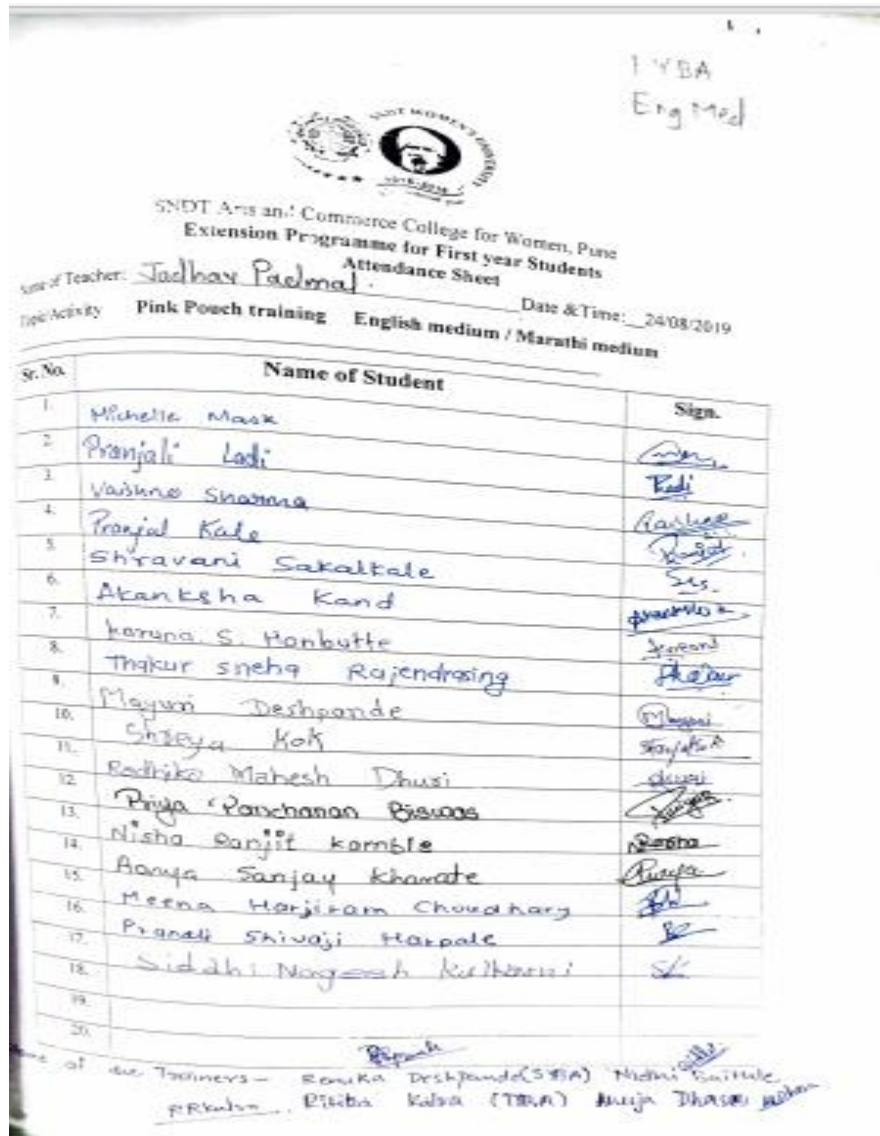 FYBA
Eng Med
SNDT WOMEN'S UNIVERSITY
SNDT Arts and Commerce College for Women, Pune
Extension Programme for First year Students
Attendance Sheet
Name of Teacher: Jadhav Padma. Date & Time: 24/08/2019
Topic/Activity Pink Pouch training English medium / Marathi medium
Sr. No. Name of Student Sign.
1. Michelle Mask
2. Pranjali Ladi
3. Vaishno Sharma
4. Pranjal Kale
5. Shravani Sakalkale
6. Akanksha Kand
7. Karuna. S. Honbutte
8. Thakur Sneha Rajendrasing
9. Mayuri Deshpande
10. Shreya Kok
11. Radhika Mahesh Dhuri
12. Priya Panchanan Biswas
13. Nisha Ranjit Kamble
14. Aanya Sanjay Kharate
15. Meena Harjiram Choudhary
16. Pranali Shivaji Harpale
17. Siddhi Nagesh Kulkarni
18.
19.
20.
of the Trainers - Renuka Deshpande (SYBA) Nidhi
RRKalsa Kalsa (TYBA) Anuja Dhase